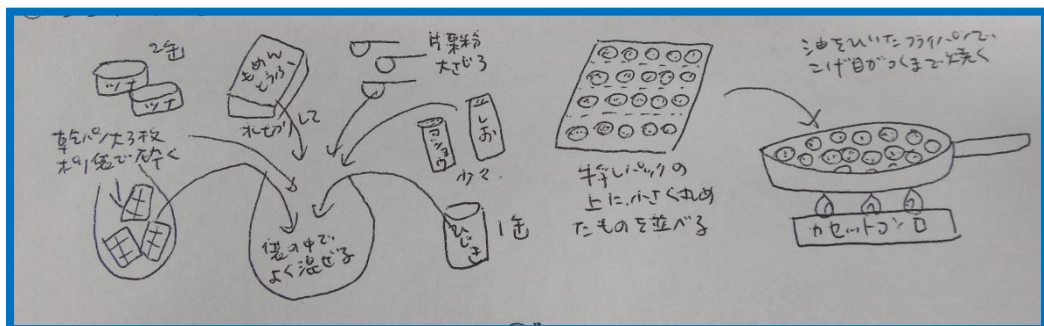 2缶
ツナ
ツナ
もめん
とうふ
水切りして
片栗粉
大さじ3
しお
コショウ
少々
乾パン大3枚
ポリ袋で砕く
袋の中で
よく混ぜる
ひじき
1缶
牛乳パックの
上に、小さく丸め
たものを並べる
油をひいたフライパンで、
こげ目がつくまで焼く
カセットコンロ